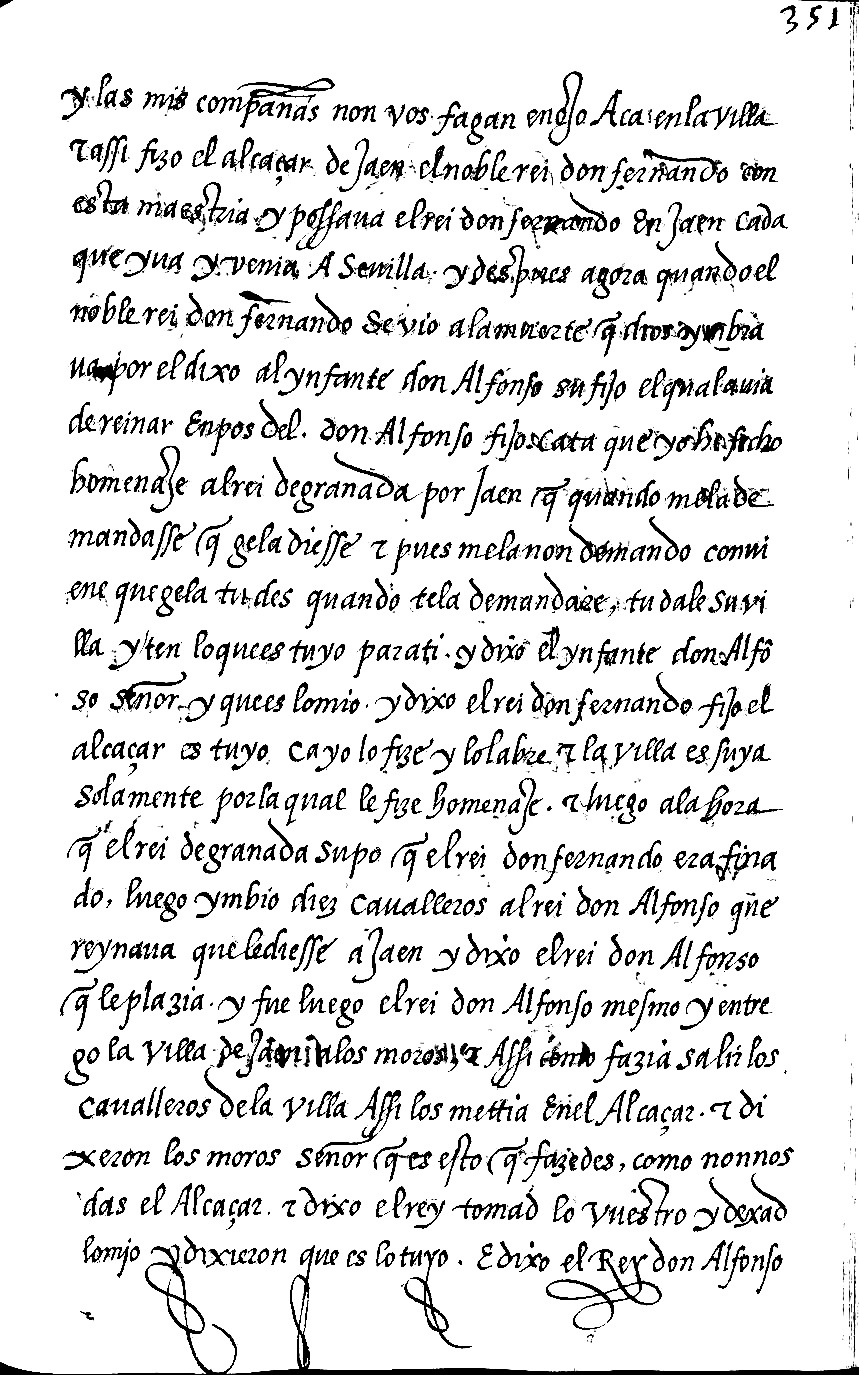 351
y las mis compañas non vos fagan enojo Aca en la villa
τ assi fizo el alcaçar de Jaen el noble rei don fernando con
esta maestria y possaua el rei don fernando En Jaen cada
que yua y venia A Sevilla. y despues agora quando el
noble rei don fernando se vio a la muerte q̃ dios ymbia
ua por el dixo al ynfante don Alfonso su fijo el qual auia
de reinar Enpos del. don Alfonso fijo cata que yo he fecho
homenaje al rei de granada por Jaen q̃ quando me la de
mandasse q̃ gela diesse τ pues me la non demando convi
ene que gela tu des quando te la demandare, tu dale su vi
lla y ten lo que es tuyo para ti. y dixo el ynfante don Alfõ
so señor y que es lo mio. y dixo el rei don fernando fijo el
alcaçar es tuyo ca yo lo fize y lo labre τ la villa es suya
solamente por la qual le fize homenaje. τ luego a la hora
q̃ el rei de granada supo q̃ el rei don fernando era fina
do, luego ymbio diez cavalleros al rei don Alfonso q̃ue
reynaua que le diesse a Jaen y dixo el rei don Alfonso
q̃ le plazia. y fue luego el rei don Alfonso mesmo y entre
go la villa de Jaen a los moros, τ Assi como fazia salir los
cavalleros de la villa Assi los mettia En el Alcaçar. τ di
xeron los moros señor q̃ es esto q̃ fazedes, como non nos
das el Alcaçar. τ dixo el rey tomad lo vuestro y dexad
lo mjo y dixieron que es lo tuyo. E dixo el Rey don Alfonso